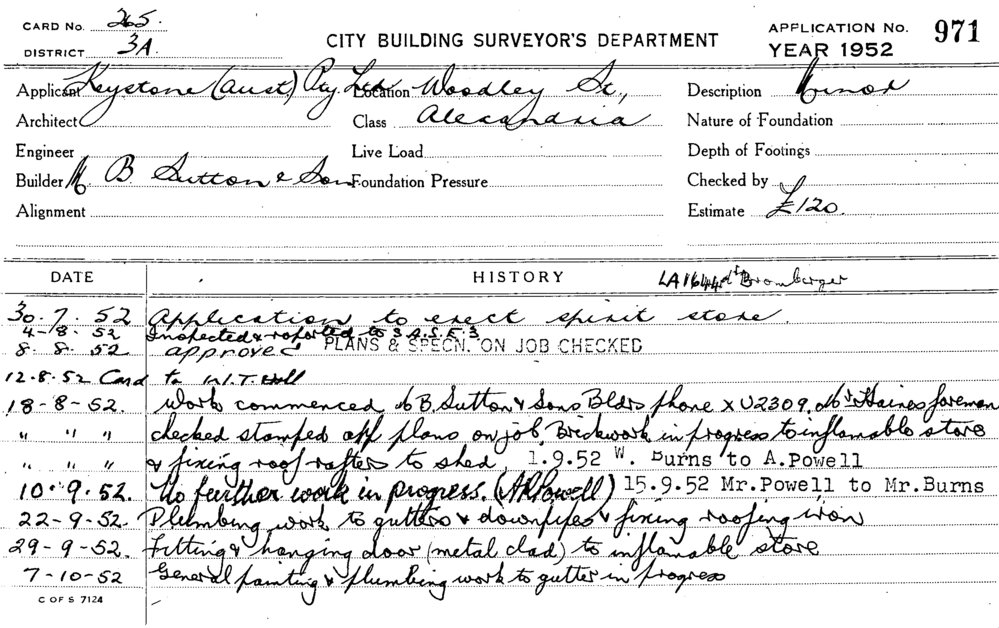 CARD No. 265.
DISTRICT 3A.
CITY BUILDING SURVEYOR'S DEPARTMENT
APPLICATION No. 971
YEAR 1952
Applicant Keystone (Aust) Pty. Ltd. Location Woodley St., Description Minor
Architect Class Alexandria Nature of Foundation
Engineer Live Load Depth of Footings
Builder M. B. Sutton & Son Foundation Pressure Checked by
Alignment Estimate £120.
DATE HISTORY LA1644 Bromberger
30.7.52 Application to erect spirit store.
4-8.52 Inspected & reported to 3 A.S.E.3
8.8.52 approved PLANS & SPECN. ON JOB CHECKED
12-8-52 Card to
18-8-52. Work commenced M B. Sutton & Sons Bldrs phone XU2309. Mr Haines foreman
" " " checked stamped app plans on job. Brickwork in progress to inflamable store
" " " & fixing roof rafters to shed 1.9.52 W. Burns to A.Powell
10.9.52. No further work in progress. (A R Powell) 15.9.52 Mr.Powell to Mr.Burns
22-9-52. Plumbing work to gutters & downpipes & fixing roofing iron
29-9-52. Fitting & hanging door (metal clad) to inflamable store
7-10-52 General painting & plumbing work to gutter in progress
C OF S 7124